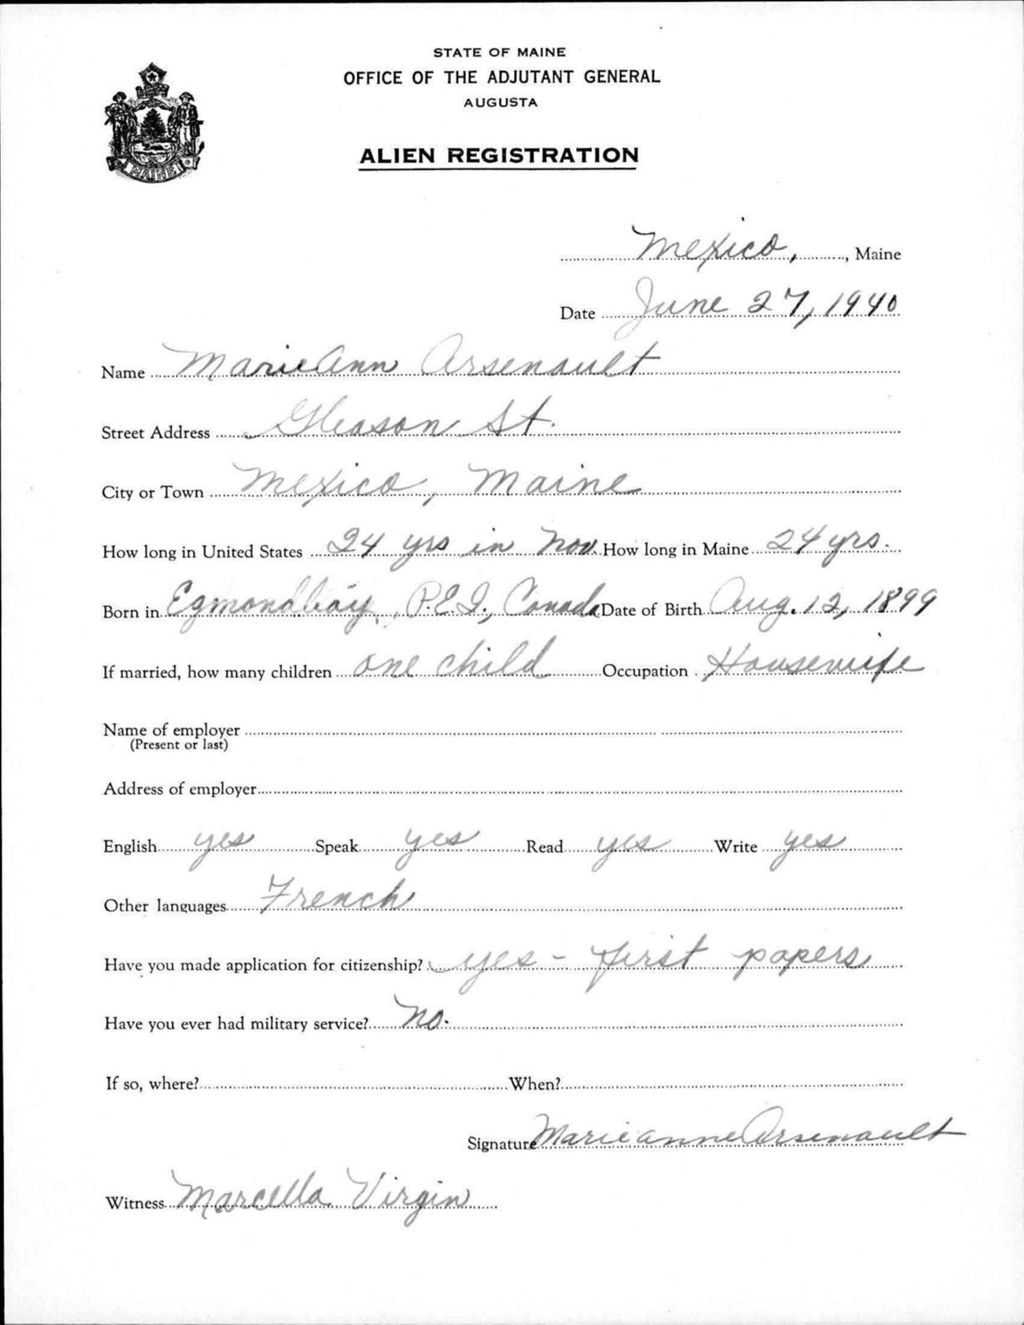 STATE OF MAINE
OFFICE OF THE ADJUTANT GENERAL
AUGUSTA
ALIEN REGISTRATION
MAINE
Mexico, , Maine
Date June 27, 1940
Name MarieAnn Arsenault
Street Address Gleason St.
City or Town Mexico, Maine
How long in United States 24 yrs in Nov. How long in Maine 24 yrs.
Born in Egmondbay, P.E.I., Canada Date of Birth Aug. 12, 1899
If married, how many children one child Occupation Housewife
Name of employer
(Present or last)
Address of employer
English yes Speak yes Read yes Write yes
Other languages French
Have you made application for citizenship? yes - first papers
Have you ever had military service? No.
If so, where? When?
Signature Marieanne Arsenault
Witness Marcella Virgin